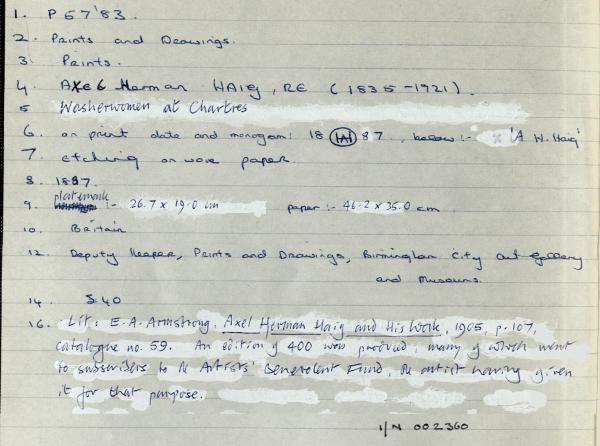 1. P 57'83.
2. Prints and Drawings.
3. Prints.
4. Axel Herman HAIG, RE (1835-1921).
5 Washerwomen at Chartres
6. on print date and monogam: 18 HA 87 , below :- 'A W. Haig'
7. etching on wove paper.
8. 1887.
9. platemark :- 26.7 x 19.0 cm paper :- 46.2 x 35.0 cm
10. Britain
12. Deputy Keeper, Prints and Drawings, Birmingham City art gallery
and Museums.
14. £40
16. Lit: E.A. Armstrong, Axel Herman Haig and His Work, 1905, p.107,
catalogue no. 59. An edition of 400 was produced, many of which went
to subscribers to the Artists' Benevolent Fund, the artist having given
it for that purpose.
I/N 002360